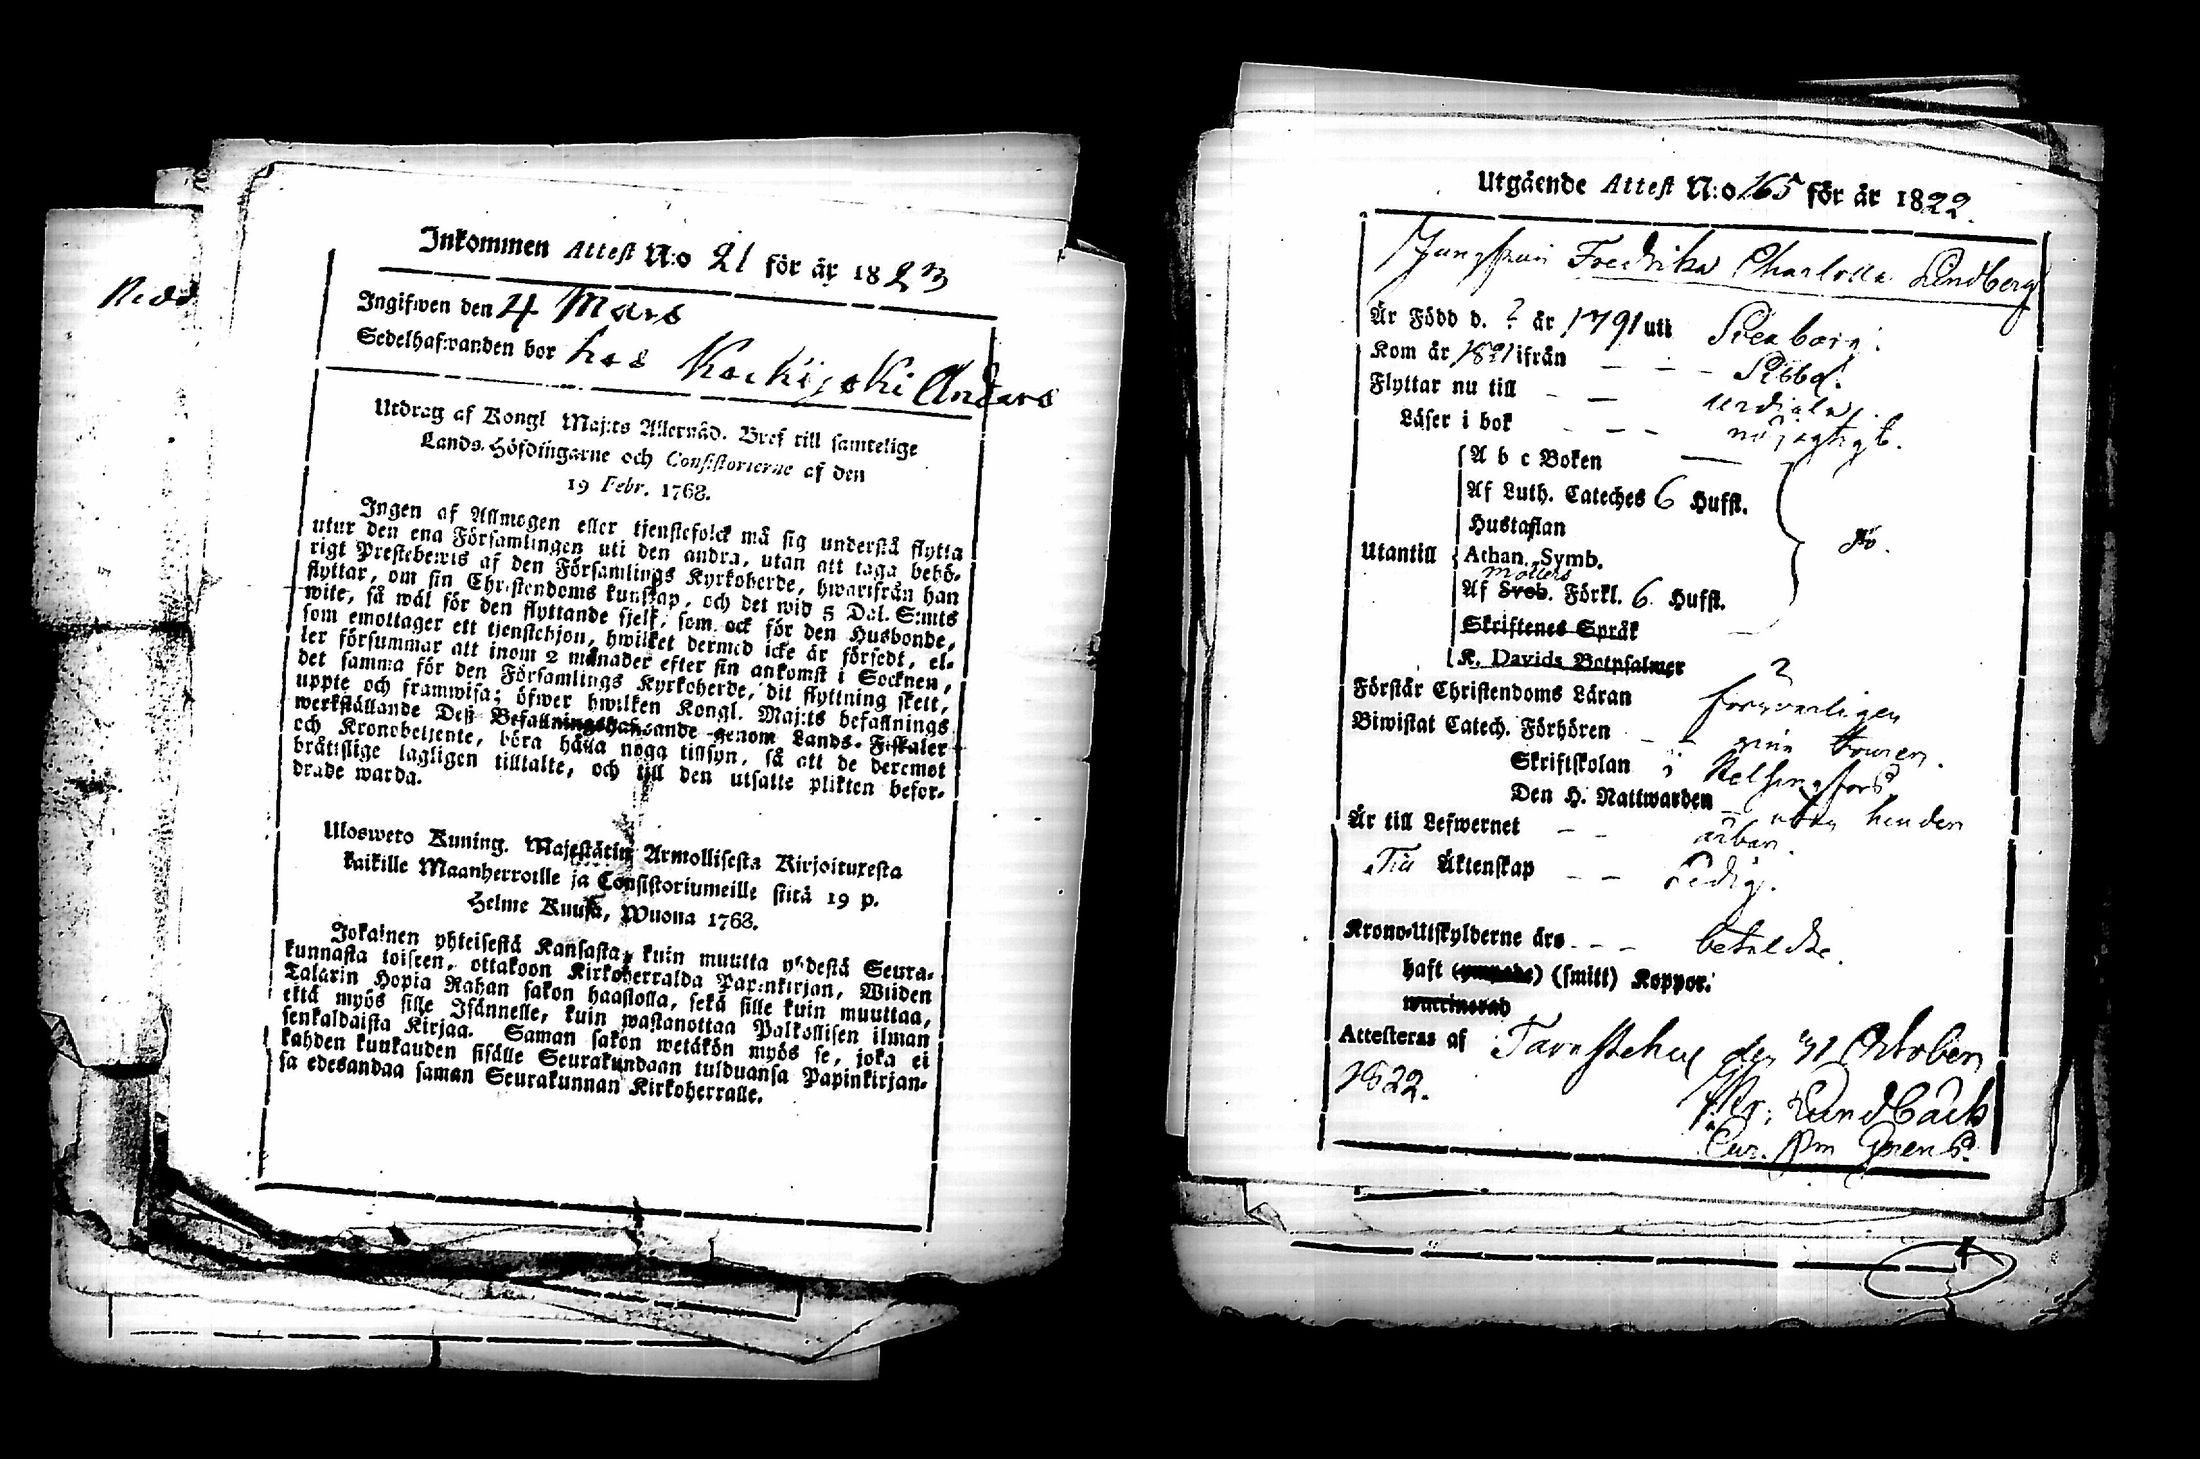 Inkommen Attest N:o 21 för år 1823
Ingifwen den 4 Mars
Sedelhafwanden bor hos Anders
Utdrag af Kongl Maj:ts Allernåd. Bref till samtelige
Lands-Höfdingarne och Consistorierne af den
19 Febr. 1768.
Ingen af Allmogen eller tjenstefolck må sig understå flytta
utur den ena Församlingen uti den andra, utan att taga behö-
rigt Prestebewis af den Församlings Kyrkoherde, hwarifrån han
flyttar, om sin Christendoms kunskap, och det wid 5 Dal. S:mts
wite, så wäl för den flyttande sjelf, som ock för den Husbonde,
som emottager ett tjenstehjon, hwilket dermed icke är försedt, el-
ler försummar att inom 2 månader efter sin ankomst i Socknen,
det samma för den Församlings Kyrkoherde, dit flyttning skett,
uppte och framwisa; öfwer hwilken Kongl. Maj:ts befallnings
werkställande Dess Befallningshafwande genom Lands-Fiskaler
och Kronobetjente, böra hålla noga tillsyn, så att de deremot
bråtislige lagligen tilltalte, och till den utsatte plikten befor-
drade warda.
Uloswero Kuning. Majestätin Armollisesta Kirjoituxesta
kaikille Maanherroille ja Consistoriumeille siitä 19 p.
Helme Kuusa, Wuona 1768.
Jokainen yhteisestä Kansasta, kuin muutta yhdestä Seura-
kunnasta toiseen, ottakoon Kirkoherralda Papinkirjan, Wiiden
Talarin Hopia Rahan sakon haastolla, sekä sille kuin muuttaa,
että myös sille Isännelle, kuin wastanottaa Palkollisen ilman
senkaldaista Kirjaa. Saman sakon wetäkön myös se, joka ei
kahden kuukauden sisälle Seurakundaan tulduansa Papinkirjan-
sa edesandaa saman Seurakunnan Kirkoherralle.
Utgående Attest N:o 165 för år 1822.
Jungfrun Fredrika Charlotta Lindberg
Är Född d. ? år 1791 uti
Kom år 1821 ifrån - - - Sibbo.
Flyttar nu till - - Urdiala.
Läser i bok - - - nöjagtigt.
A b c Boken
Af Luth. Cateches 6 Hufst.
Hustaflan
Utantill Athan. Symb.
möllers
Af Sveb. Förkl. 6 Hufst.
Skriftenes Språk
K. Davids Botpsalmer
Förstår Christendoms Läran försvarligen
Biwistat Catech. Förhören - -
Skriftskolan i Helsingfors
Den H. Nattwarden -
Är till Lefwernet - - ärbar.
Till Äktenskap - - Ledig.
Krono-Utskylderne års - - - betalde.
haft (ympade) (smitt) Koppor.
waccinerad
Attesteras af Tavastehus den 31 October
1822.